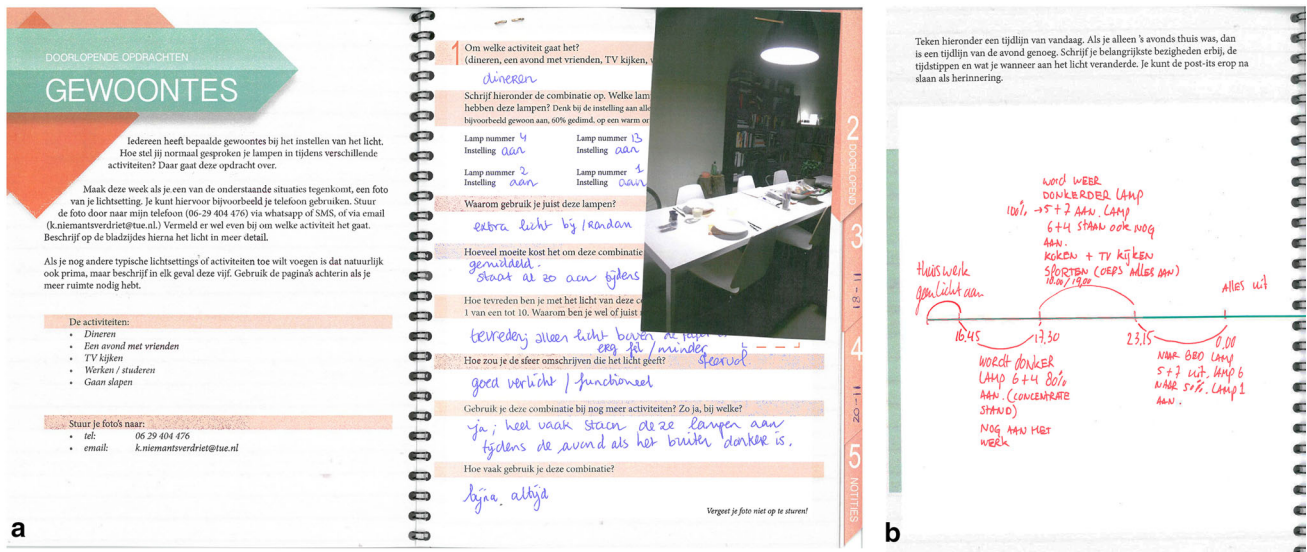 DOORLOPENDE OPDRACHTEN
GEWOONTES
Iedereen heeft bepaalde gewoontes bij het instellen van het licht.
Hoe stel jij normaal gesproken je lampen in tijdens verschillende
activiteiten? Daar gaat deze opdracht over.
Maak deze week als je een van de onderstaande situaties tegenkomt, een foto
van je lichtsetting. Je kunt hiervoor bijvoorbeeld je telefoon gebruiken. Stuur
de foto door naar mijn telefoon (06-29 404 476) via whatsapp of SMS, of via email
(k.niemantsverdriet@tue.nl.) Vermeld er wel even bij om welke activiteit het gaat.
Beschrijf op de bladzijdes hierna het licht in meer detail.
Als je nog andere typische lichtsettings of activiteiten toe wilt voegen is dat natuurlijk
ook prima, maar beschrijf in elk geval deze vijf. Gebruik de pagina's achterin als je
meer ruimte nodig hebt.
De activiteiten:
• Dineren
• Een avond met vrienden
• TV kijken
• Werken / studeren
• Gaan slapen
Stuur je foto's naar:
• tel: 06 29 404 476
• email: k.niemantsverdriet@tue.nl
a
1 Om welke activiteit gaat het?
(dineren, een avond met vrienden, TV kijken,
dineren
Schrijf hieronder de combinatie op. Welke lam
hebben deze lampen? Denk bij de instelling aan alle
bijvoorbeeld gewoon aan, 60% gedimd, op een warm or
Lamp nummer 4 Lamp nummer 13
Instelling aan Instelling aan
Lamp nummer 2 Lamp nummer 1
Instelling aan Instelling aan
Waarom gebruik je juist deze lampen?
extra licht bij / rondom
Hoeveel moeite kost het om deze combinatie
gemiddeld.
staat al zo aan tijdens
Hoe tevreden ben je met het licht van deze co
1 van een tot 10. Waarom ben je wel of juist
tevreden; alleen licht boven de
erg fel / minder
sfeervol.
Hoe zou je de sfeer omschrijven die het licht geeft?
goed verlicht / functioneel
Gebruik je deze combinatie bij nog meer activiteiten? Zo ja, bij welke?
ja; heel vaak staan deze lampen aan
tijdens de avond als het buiten donker is.
Hoe vaak gebruik je deze combinatie?
bijna altijd
Vergeet je foto niet op te sturen!
2 DOORLOPEND
3
18-11
4
20-11
5 NOTITIES
b
Teken hieronder een tijdlijn van vandaag. Als je alleen 's avonds thuis was, dan
is een tijdlijn van de avond genoeg. Schrijf je belangrijkste bezigheden erbij, de
tijdstippen en wat je wanneer aan het licht veranderde. Je kunt de post-its erop na
slaan als herinnering.
WORD WEER
DONKERDER LAMP
100% → 5 + 7 AAN. LAMP
6 + 4 STAAN OOK NOG
AAN.
KOKEN + TV KIJKEN
SPORTEN (OEPS ALLES AAN)
18.00 / 19.00
thuiswerk
geen licht aan
ALLES UIT
16.45 17.30 23.15 0.00
WORDT DONKER
LAMP 6+4 80%
AAN. (CONCENTRATE
STAND)
NOG AAN HET
WERK
NAAR BED LAMP
5 + 7 UIT. LAMP 6
NAAR 50%. LAMP 1
AAN.